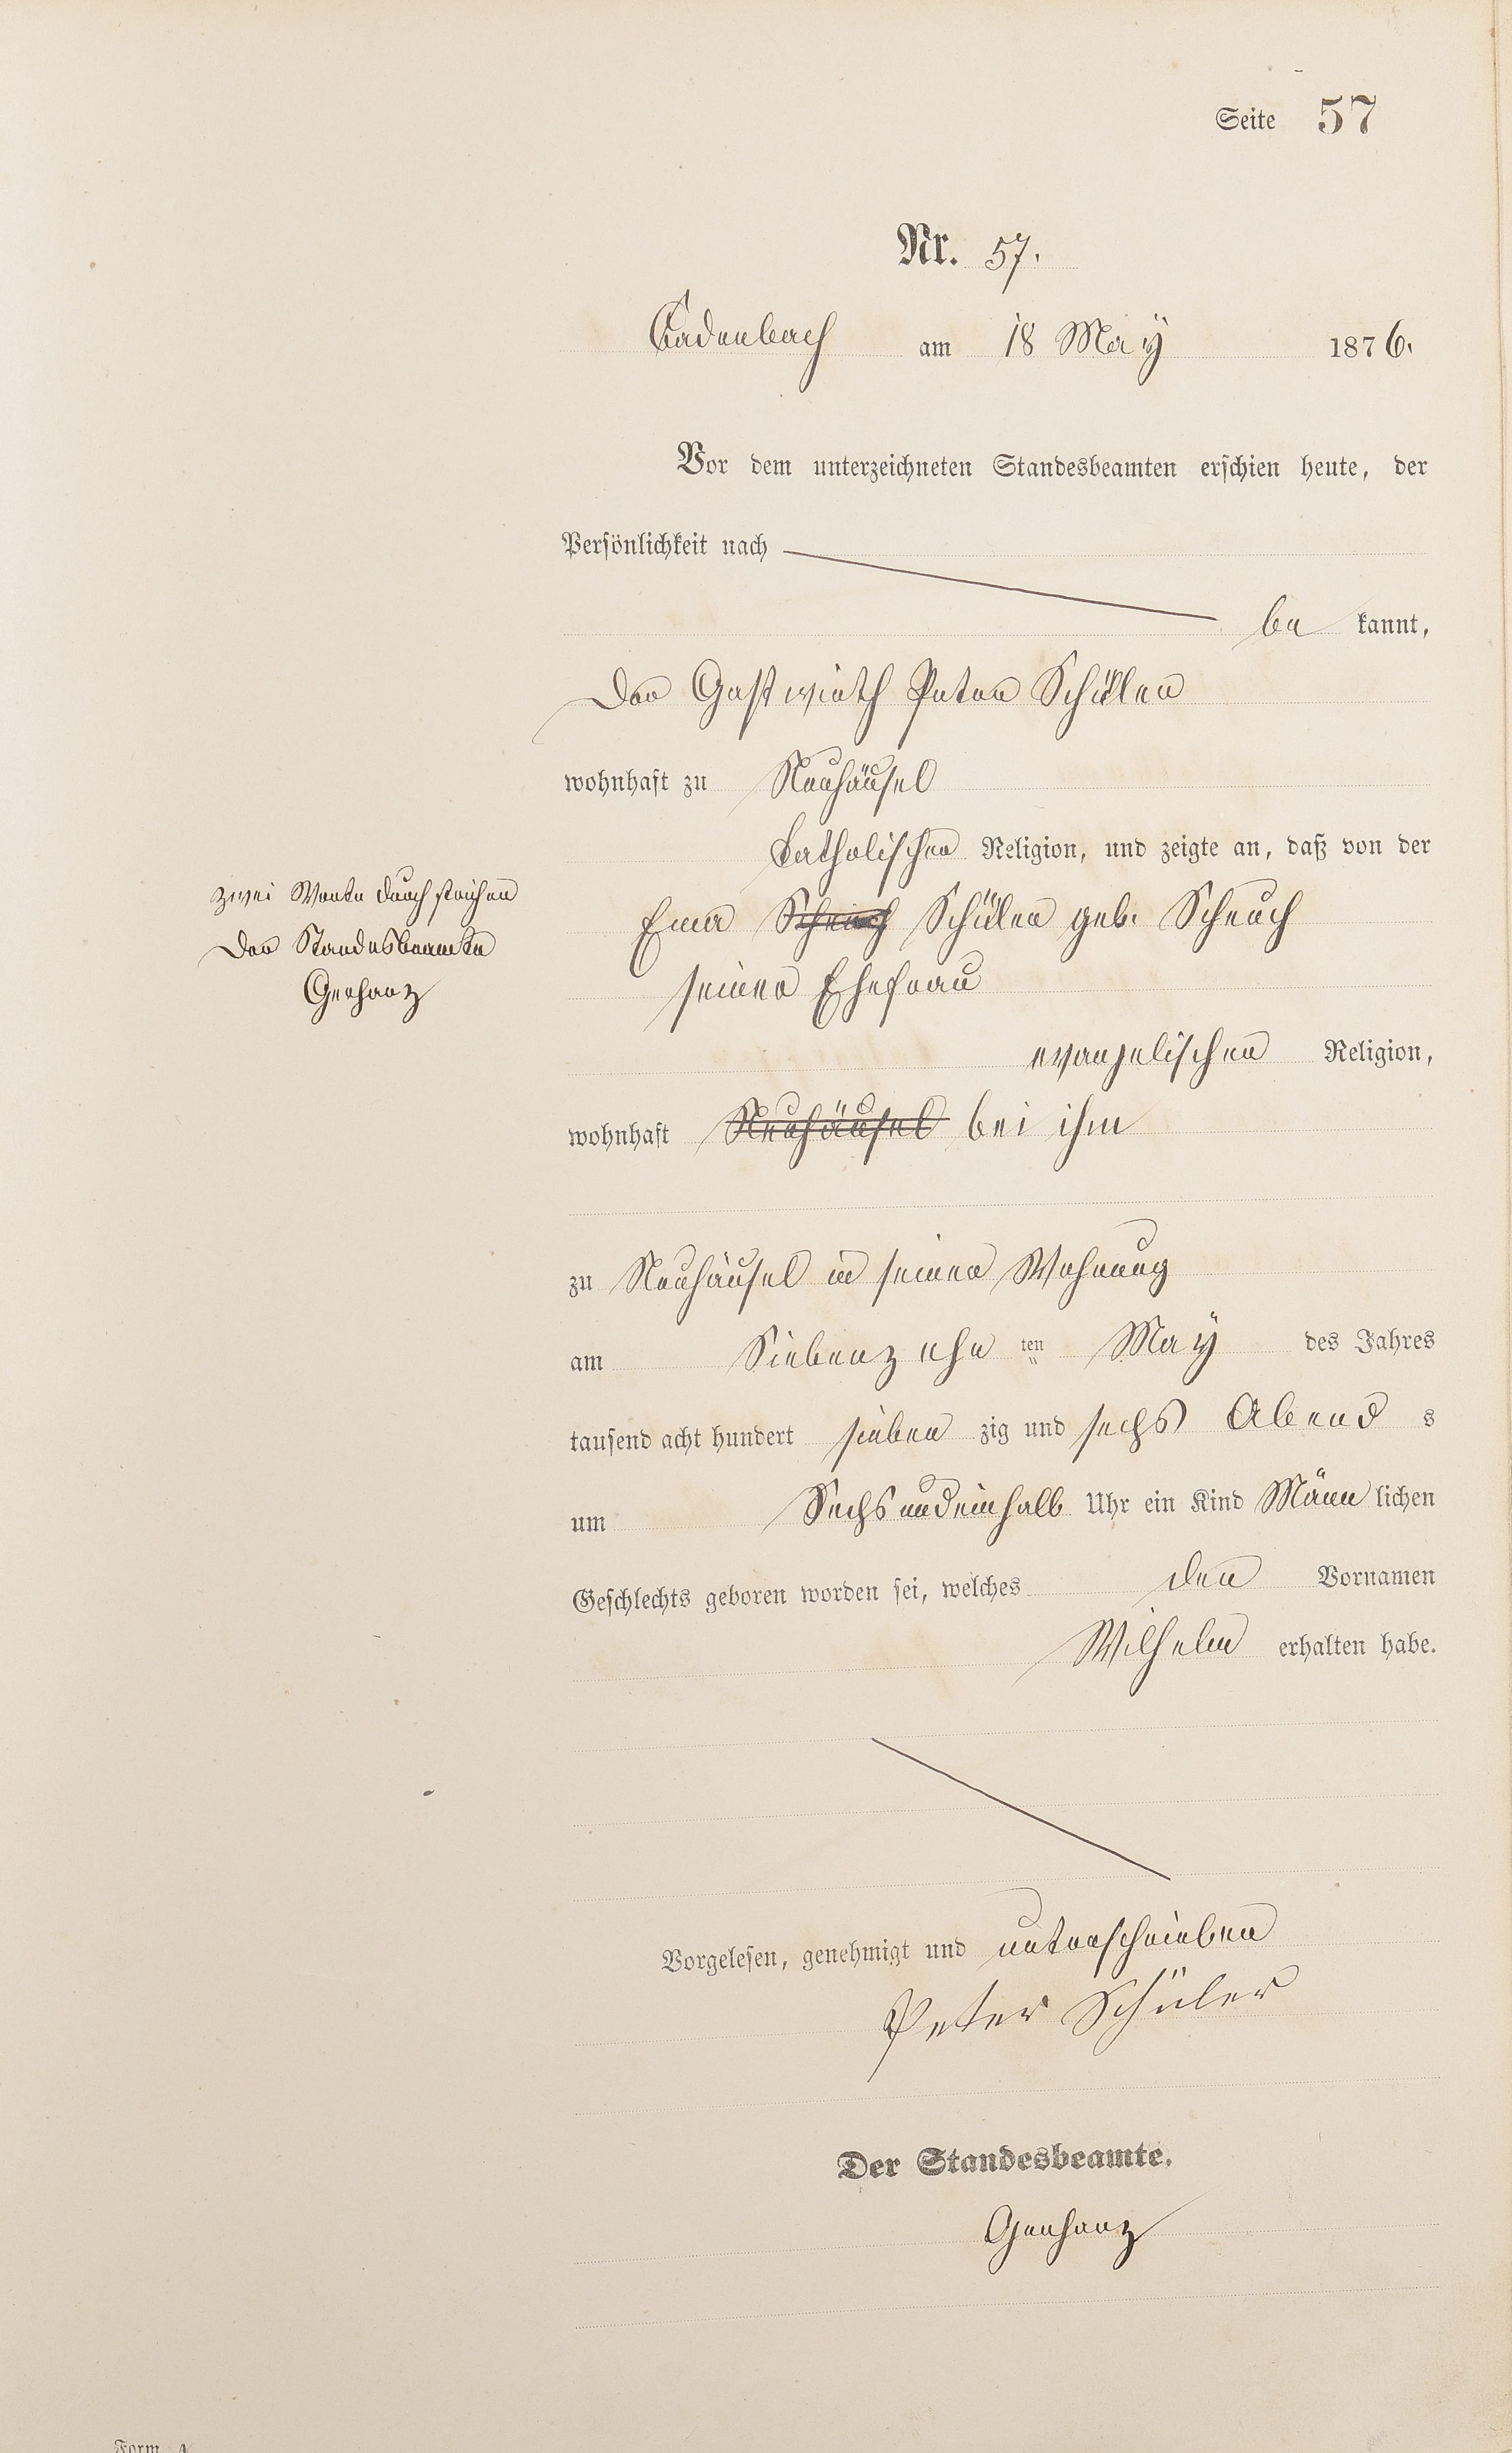 Seite 57
Nr. 57.
Cadenbach am 18 Maÿ 1876.
Vor dem unterzeichneten Standesbeamten erschien heute, der
Persönlichkeit nach
be kannt,
der Gastwirth Peter Schüler
wohnhaft zu Neuhäusel
katholischer Religion, und zeigte an, daß von der
zwei Worte durchstrichen
Ema Scheuch Schüler geb. Scheuch
Der Standesbeamte
seiner Ehefrau
Gerharz
evangelischer Religion,
wohnhaft Neuhäusel bei ihm
zu Neuhäusel in seiner Wohnung
am Siebenzehn ten Maÿ des Jahres
tausend acht hundert sieben zig und sechs Abend s
um Sechs undeinhalb Uhr ein Kind Männ lichen
Geschlechts geboren worden sei, welches den Vornamen
Wilhelm erhalten habe.
Vorgelesen, genehmigt und unterschrieben
Peter Schüler
Der Standesbeamte.
Gerharz
Form. A